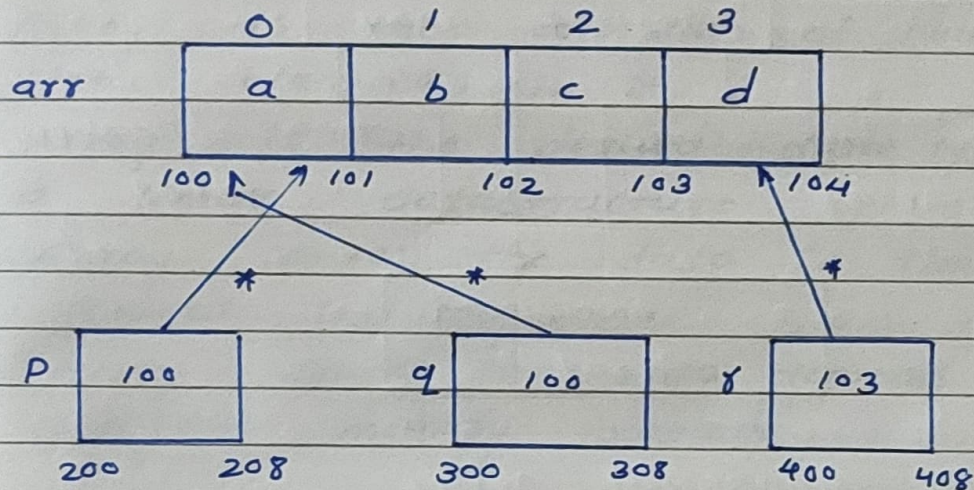 0 1 2 3
arr a b c d
100 101 102 103 104
* * *
P 100 q 100 r 103
200 208 300 308 400 408